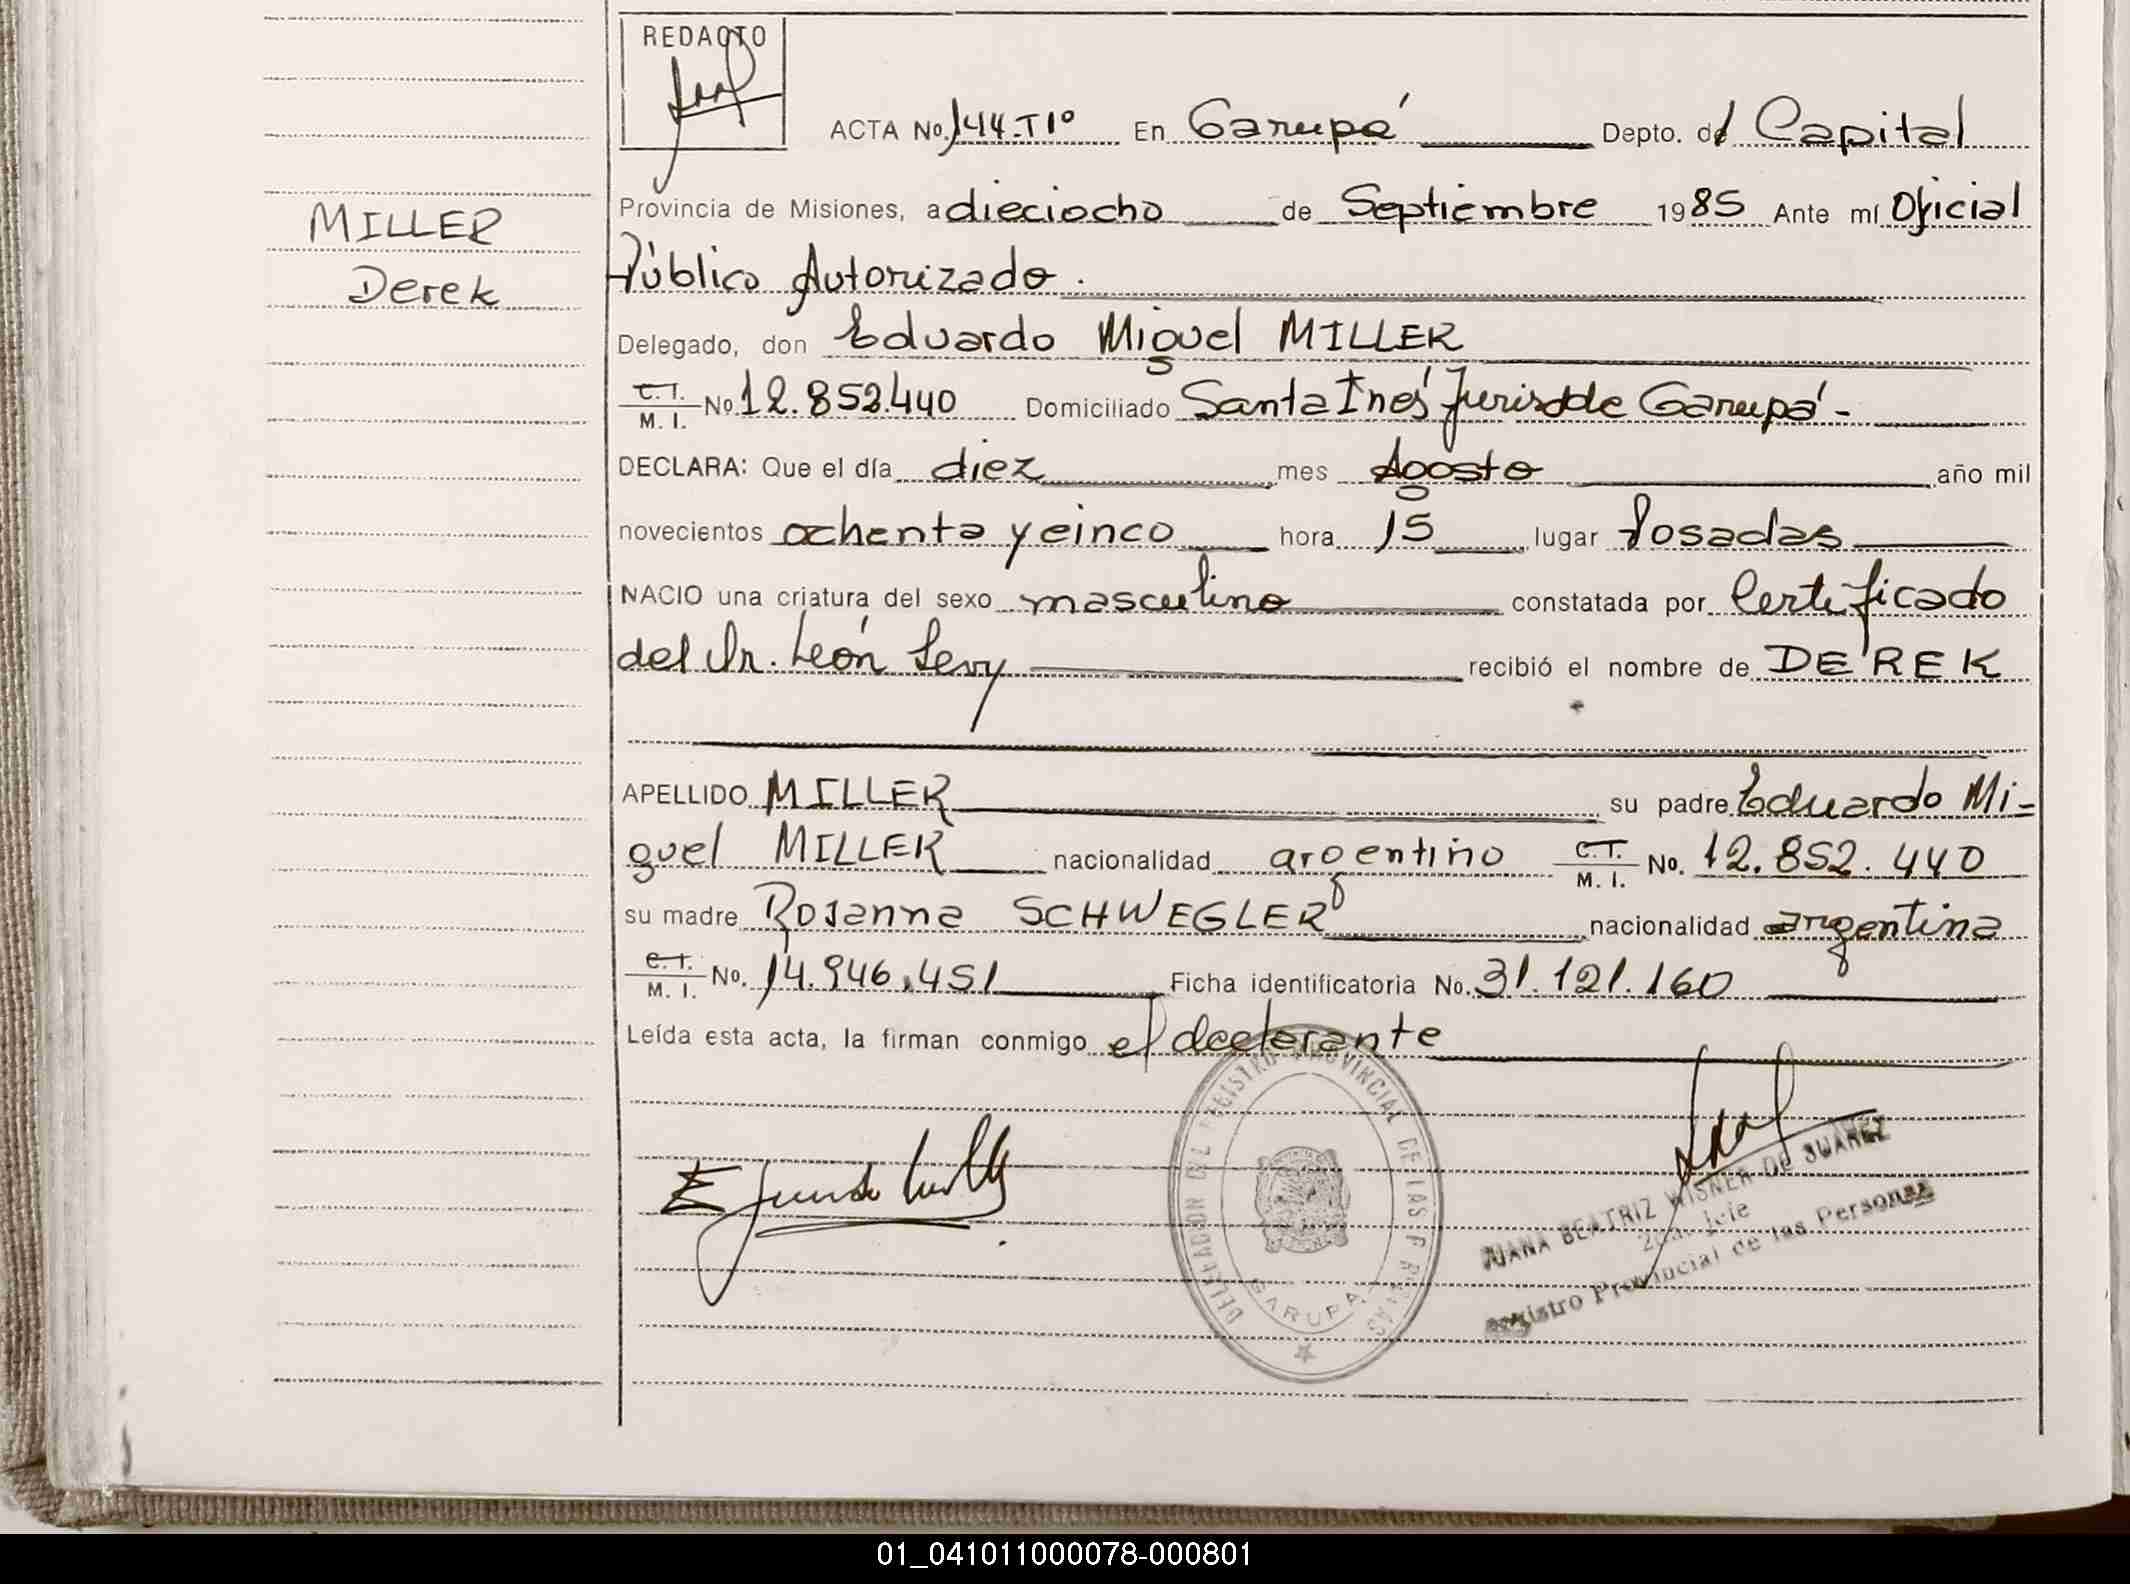 REDACTO
ACTA No. 144-T1º En Garupá Depto. del Capital
MILLER
Derek
Provincia de Misiones, a dieciocho de Septiembre 1985 Ante mí Oficial
Público Autorizado.
Delegado, don Eduardo Miguel MILLER
C. I. M. I. No. 12.852.440 Domiciliado Santa Inés Jurisd de Garupá -
DECLARA: Que el día diez mes Agosto año mil
novecientos ochenta y cinco hora 15 lugar Posadas
NACIO una criatura del sexo masculino constatada por Certificado
del Dr. León Levy recibió el nombre de DEREK
APELLIDO MILLER su padre Eduardo Mi-
guel MILLER nacionalidad argentino C. I. M. I. No. 12.852.440
su madre Rosanna SCHWEGLER nacionalidad argentina
C. I. M. I. No. 14.946.451 Ficha identificatoria No. 31.121.160
Leída esta acta, la firman conmigo el declarante
REGISTRO PROVINCIAL DE LAS PERSONAS
GARUPA
JUANA BEATRIZ WISNER DE SUAREZ
Registro Provincial de las Personas
01_041011000078-000801